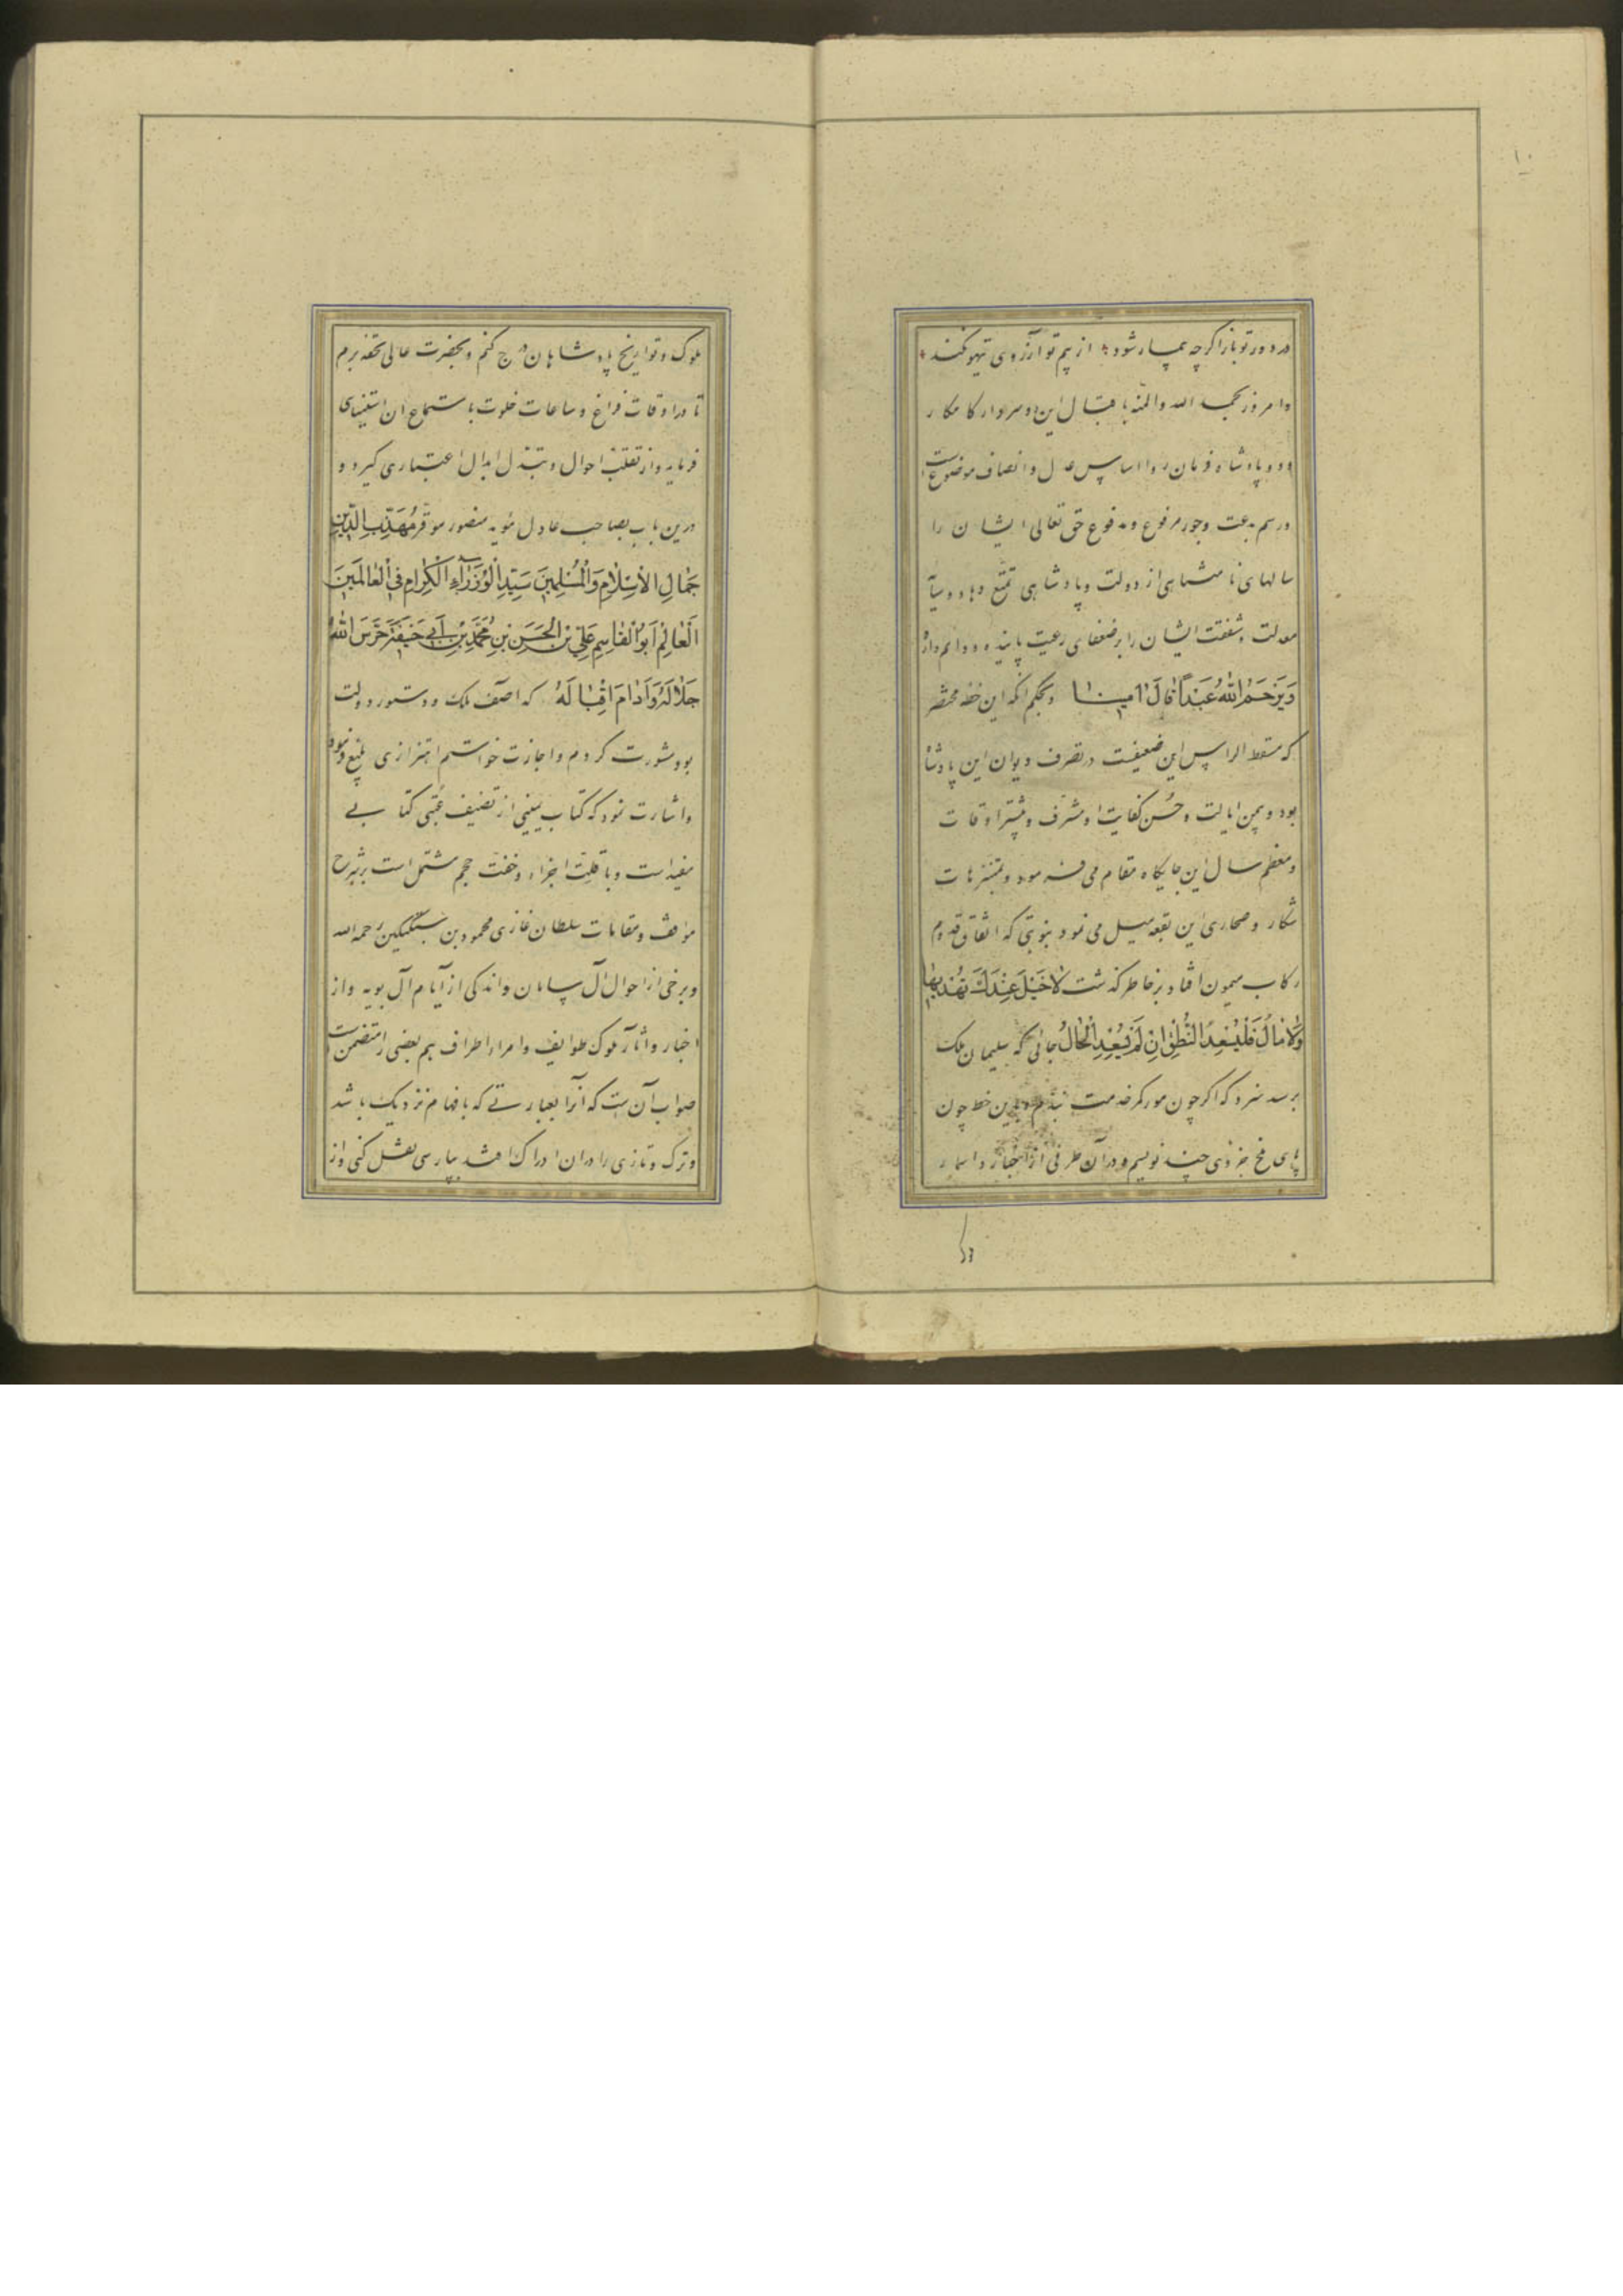 ۱۰
در دور تو باز اگرچه بیمار شود از بیم تو آرزوی تیهو نکند
وامروز بحمد الله والمنه باقبال این دو سردار کامکار
و دو پادشاه فرمان روا اساس عدل و انصاف موضوع است
و رسم بدعت و جور مرفوع و مدفوع حق تعالی ایشان را
سالهای نامتناهی از دولت و پادشاهی تمتع دهاد و سایه
معدلت و شفقت ایشان را بر ضعفای رعیت پاینده و دایم دارد
وَيَرْحَمُ اللهُ عَبْداً قَالَ اٰمِينَا و بحکم آنکه این خطه مختصر
که مسقط الراس این ضعیفست در تصرف دیوان این پادشاه
بود و بیمن ایالت و حُسن کفایت او مشرف و بیشتر اوقات
و معظم سال این جایگاه مقام می فرمود و بمتنزهات
شکار و صحاری این بقعه میل می نمود بنوبتی که اتفاق قدوم
رکاب میمون افتاد بر خاطر گذشت لَا خَيْلَ عِنْدَكَ تُهْدِيهَا
وَلَا مَالُ فَلْيُسْعِدِ النُّطْقُ اِنْ لَمْ يُسْعِدِ الْحَالُ جائی که سلیمان ملک
برسد سزد که اگر چون مور کمر خدمت بندم و باین خط چون
پای ملخ جزوی چند نویسم و در آن طرفی از اخبار و اسمار
ملوک و تواریخ پادشاهان درج کنم و بحضرت عالی تحفه برم
تا در اوقات فراغ و ساعات خلوت باستماع آن استیناسی
فرماید و از تقلب احوال و تبدل ابدال اعتباری گیرد و
درین باب بصاحب عادل مؤید منصور موقر مُهَذِّبِ الدِّينِ
جَمَالِ الْاِسْلَامِ وَالْمُسْلِمِينَ سَيِّدِ الْوُزَرَآءِ الْكِرَامِ فِي الْعَالَمِينَ
اَلْعَالِمُ اَبُو الْقَاسِمِ عَلِيِّ بْنِ الْحَسَنِ بْنِ مُحَمَّدِ بْنِ اَبِي حَنِيفَةَ حَرَسَ اللهُ
جَلَالَهُ وَاَدَامَ اِقْبَالَهُ که آصف ملک و دستور دولت
بود مشورت کردم و اجازت خواستم اهتزازی بلیغ نمود
و اشارت نمود که کتاب یمینی از تصنیف عُتبی کتابی
مفیداست و باقلت اجزاء و خفت حجم مشتمل است بر شرح
مواقف و مقامات سلطان غازی محمود بن سبکتکین رحمه الله
و برخی از احوال آل سامان و اندکی از آیام آل بویه و از
اخبار و آثار ملوک طوایف و امراء اطراف هم بعضی را متضمن است
صواب آن ست که آنرا بعبارتے که بافهام نزدیک باشد
و ترک و تازی را در آن ادراک افتد بپارسی نقل کنی و از